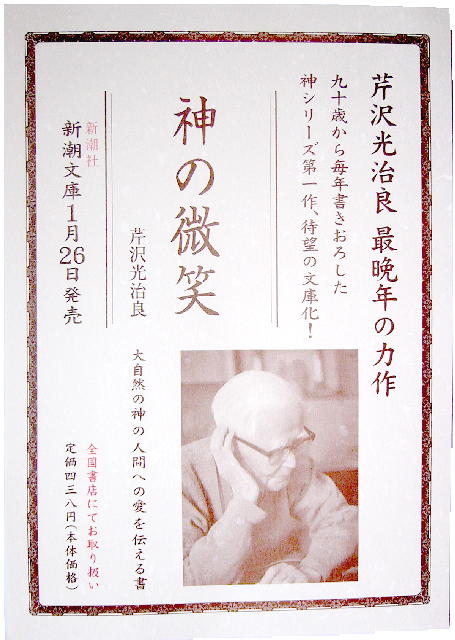 芹沢光治良 最晩年の力作
九十歳から毎年書きおろした
神シリーズ第一作、待望の文庫化！
神の微笑
芹沢光治良
新潮社
新潮文庫1月26日発売
大自然の神の人間への愛を伝える書
全国書店にてお取り扱い
定価四三八円（本体価格）